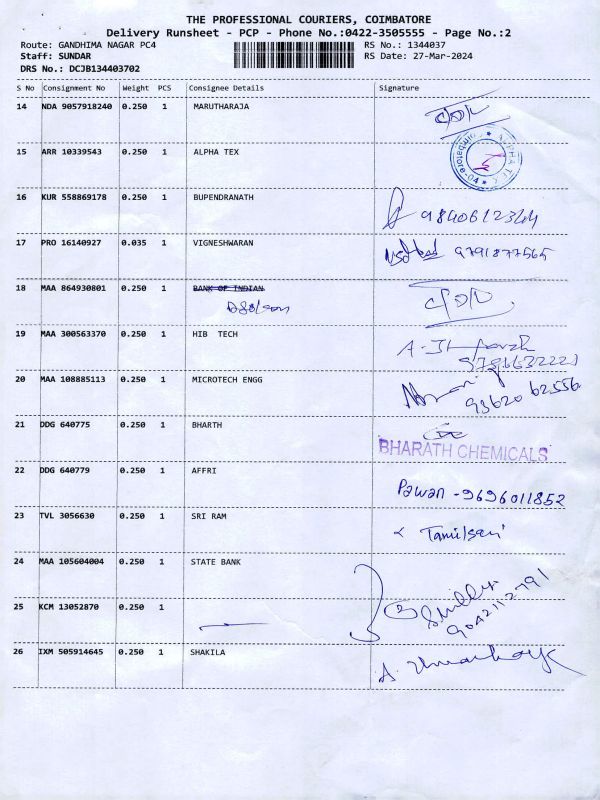 THE PROFESSIONAL COURIERS, COIMBATORE
Delivery Runsheet - PCP - Phone No.:0422-3505555 - Page No.:2
Route: GANDHIMA NAGAR PC4 RS No.: 1344037
Staff: SUNDAR RS Date: 27-Mar-2024
DRS No.: DCJB134403702
S No Consignment No Weight PCS Consignee Details Signature
14 NDA 9057918240 0.250 1 MARUTHARAJA
15 ARR 10339543 0.250 1 ALPHA TEX
ALPHA TEX
16 KUR 558869178 0.250 1 BUPENDRANATH
17 PRO 16140927 0.035 1 VIGNESHWARAN 9791877565
18 MAA 864930801 0.250 1 BANK OF INDIAN
19 MAA 300563370 0.250 1 HIB TECH
20 MAA 108885113 0.250 1 MICROTECH ENGG
93620 62556
21 DDG 640775 0.250 1 BHARTH
BHARATH CHEMICALS
22 DDG 640779 0.250 1 AFFRI
Pawan - 9696011852
23 TVL 3056630 0.250 1 SRI RAM
24 MAA 105604004 0.250 1 STATE BANK
25 KCM 13052870 0.250 1
9042112791
26 IXM 505914645 0.250 1 SHAKILA